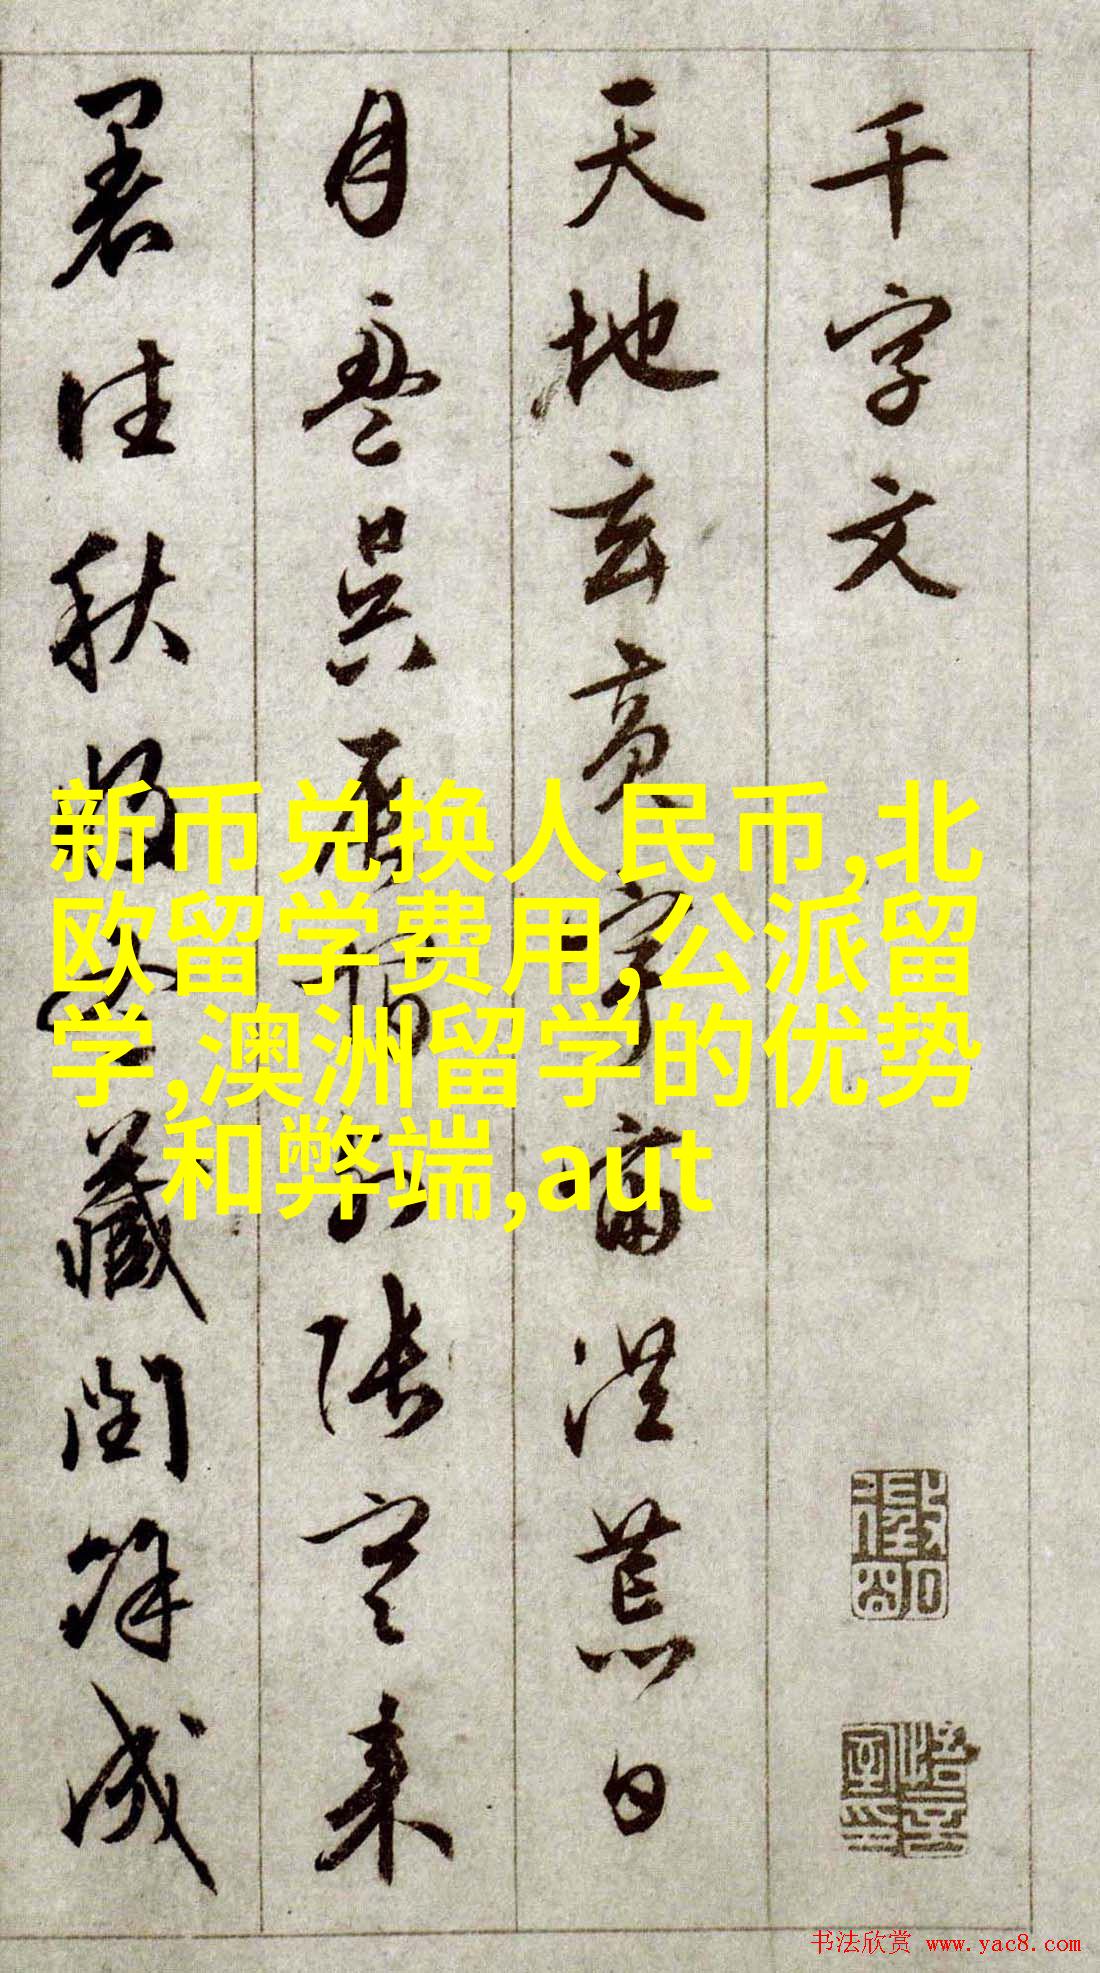 千字文
天地玄黄宇宙洪荒日
月盈昃辰宿列張寒来
暑往秋收冬藏閏餘成
新币兑换人民币,北
欧留学费用,公派留
学,澳洲留学的优势
和弊端,aut
书法欣赏 www.yac8.com